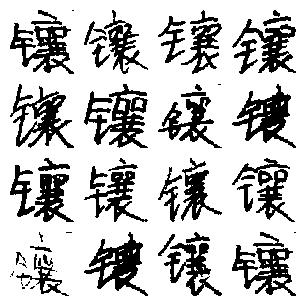 镶镶镶镶
镶镶镶镶
镶镶镶镶
镶镶镶镶